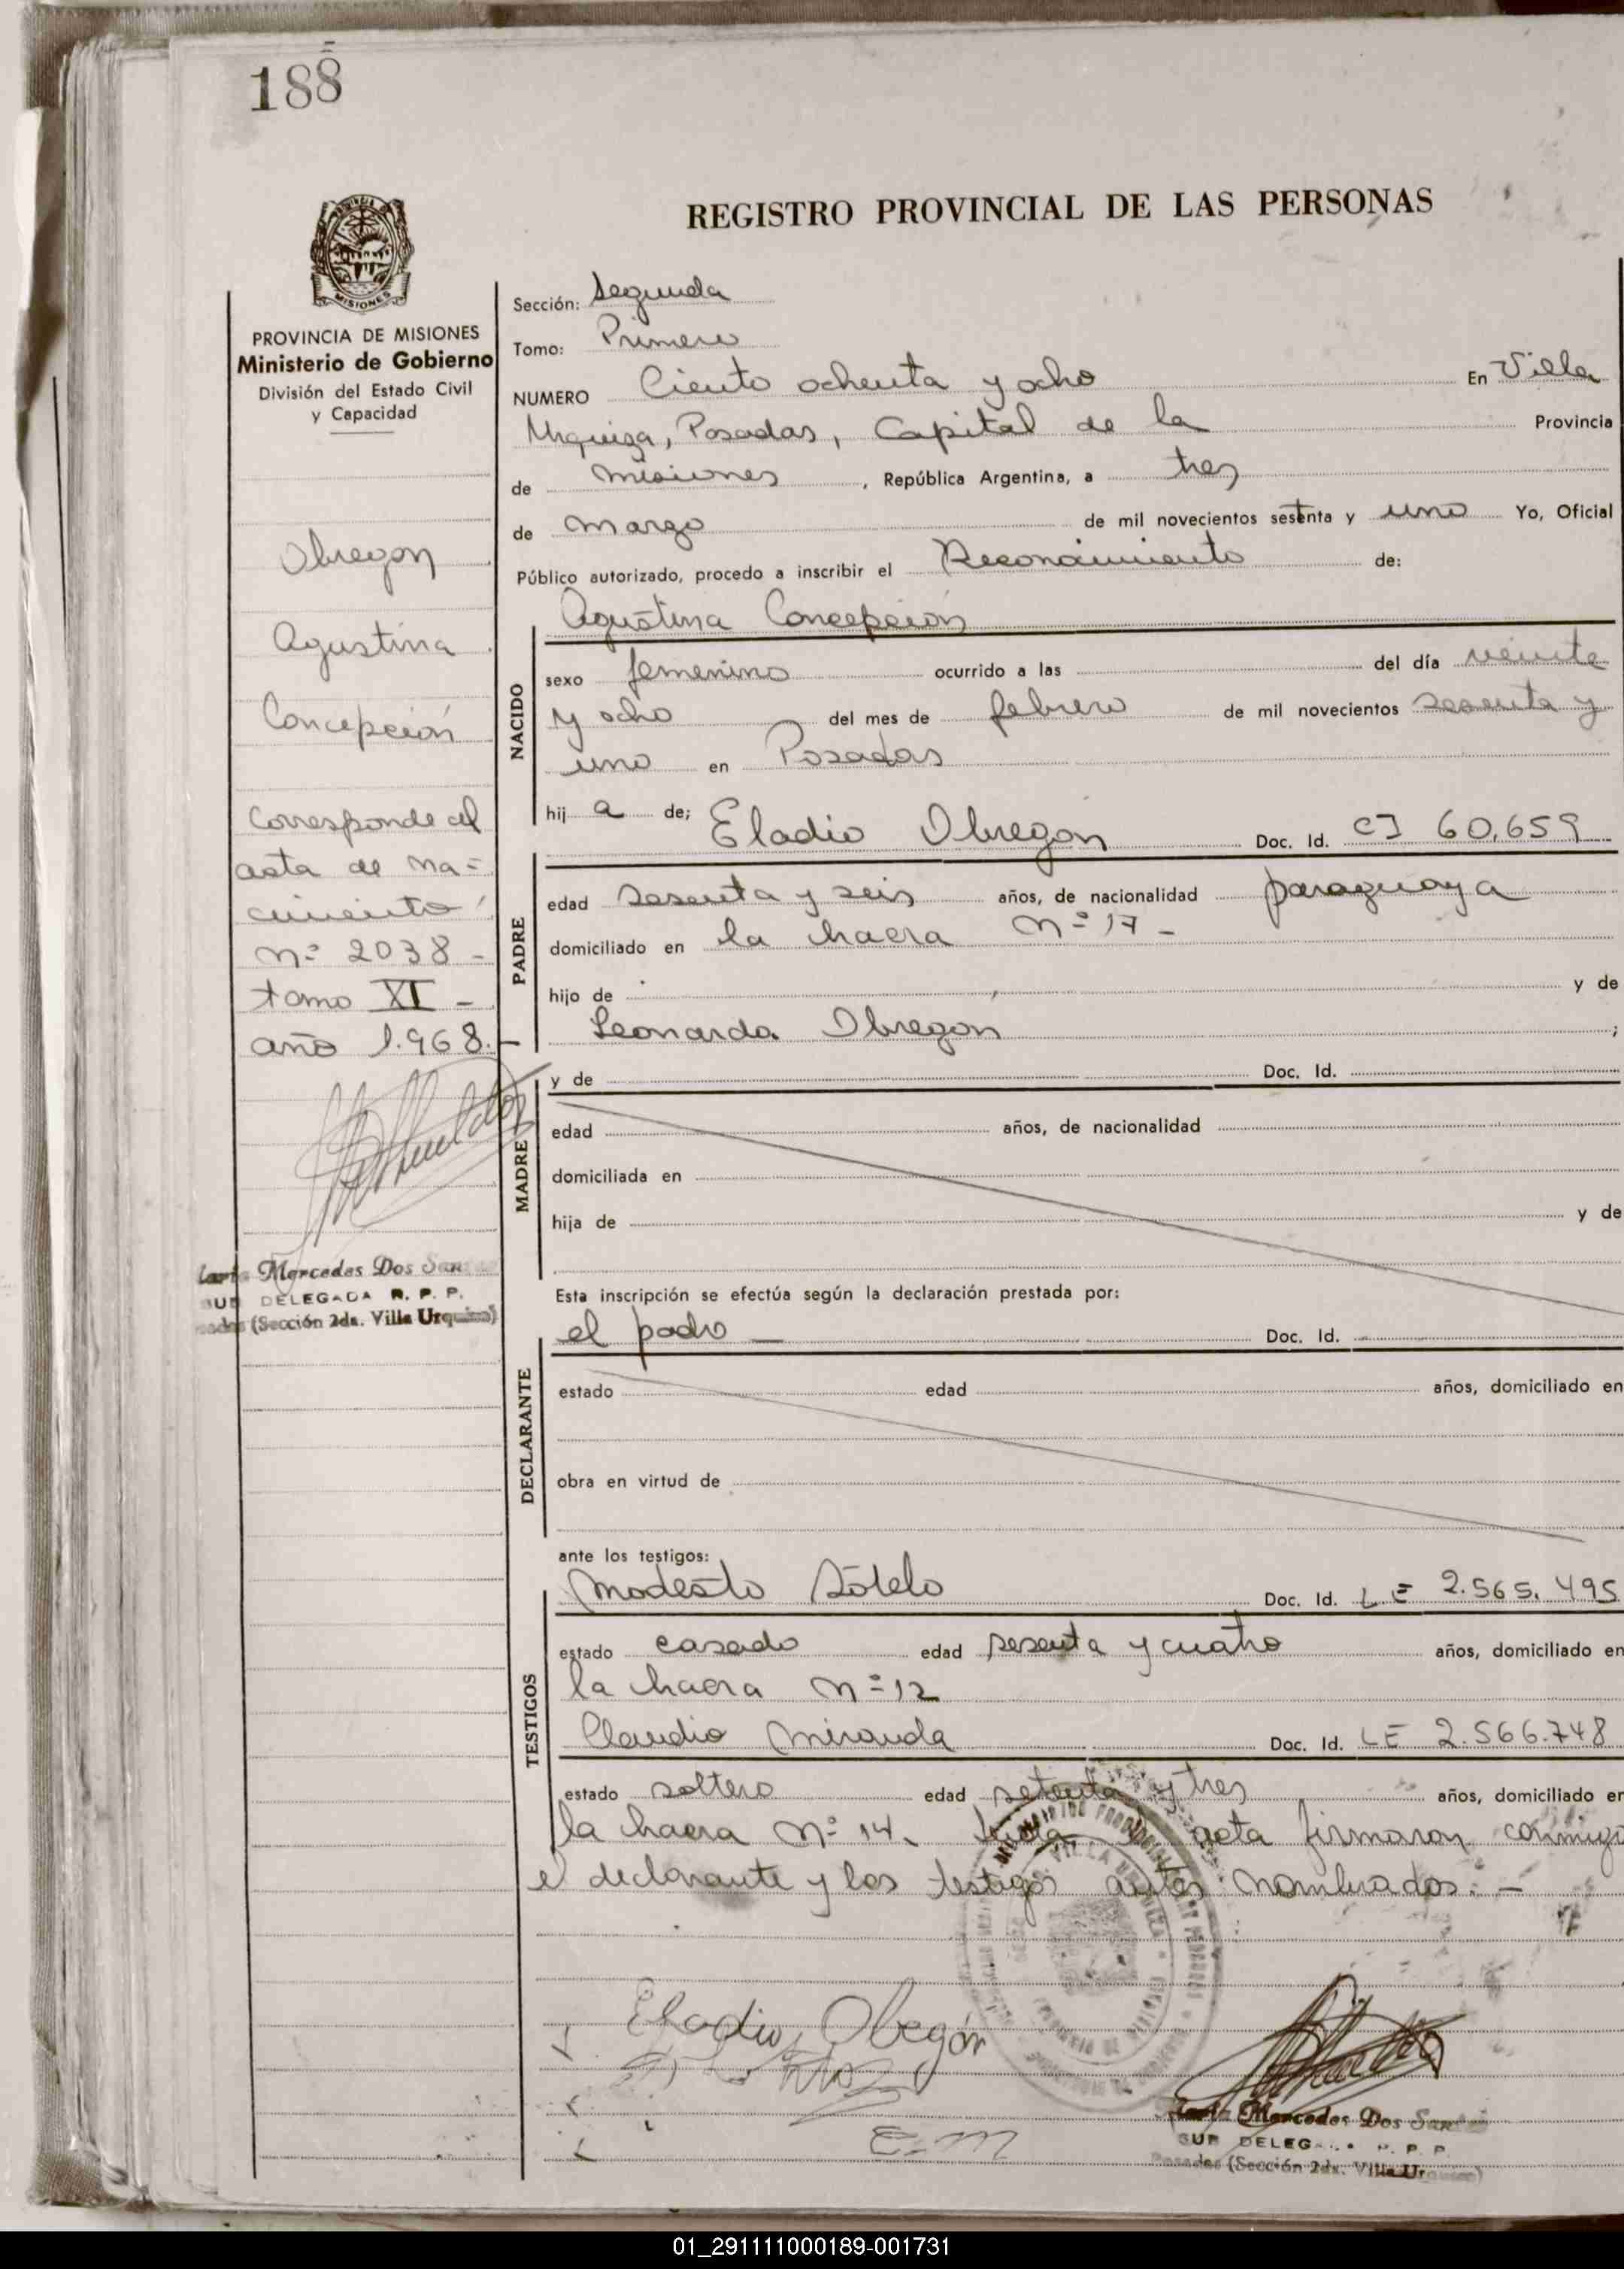 188
REGISTRO PROVINCIAL DE LAS PERSONAS
MISIONES
PROVINCIA DE MISIONES
Ministerio de Gobierno
División del Estado Civil
y Capacidad
Obregon
Agustina
Concepción
Corresponde al
acta de na=
cimiento
n:= 2038 -
tomo XI -
año 1.968. -
Mercedes Dos San
SUB DELEGADA R. P. P.
(Sección 2da. Villa Urquiza)
Sección: Segunda
Tomo: Primero
NUMERO Ciento ochenta y ocho En Villa
Urquiza, Posadas, Capital de la Provincia
de Misiones , República Argentina, a tres
de marzo de mil novecientos setenta y uno Yo, Oficial
Público autorizado, procedo a inscribir el Reconocimiento de:
Agustina Concepción
NACIDO
sexo femenino ocurrido a las del día veinte
y ocho del mes de febrero de mil novecientos sesenta y
uno en Posadas
hij a de; Eladio Obregon Doc. Id. CI 60,659
PADRE
edad sesenta y seis años, de nacionalidad paraguaya
domiciliado en la chacra n:= 17 -
hijo de y de
Leonarda Obregon ;
MADRE
y de Doc. Id.
edad años, de nacionalidad
domiciliada en
hija de y de
Esta inscripción se efectúa según la declaración prestada por:
el padre — Doc. Id.
DECLARANTE
estado edad años, domiciliado en
obra en virtud de
ante los testigos:
Modesto Sotelo Doc. Id. LE 2.565.495
TESTIGOS
estado casado edad sesenta y cuatro años, domiciliado en
la chacra n:= 12
Claudio Miranda Doc. Id. LE 2.566.748
estado soltero edad setenta y tres años, domiciliado en
la chacra n:= 14. acta firmaron conmigo
el declarante y los testigos antes nombrados. -
Eladio Obregón
E.M
Mercedes Dos San
SUB DELEG P. P.
Posadas (Sección 2da. Villa Ur
01_291111000189-001731